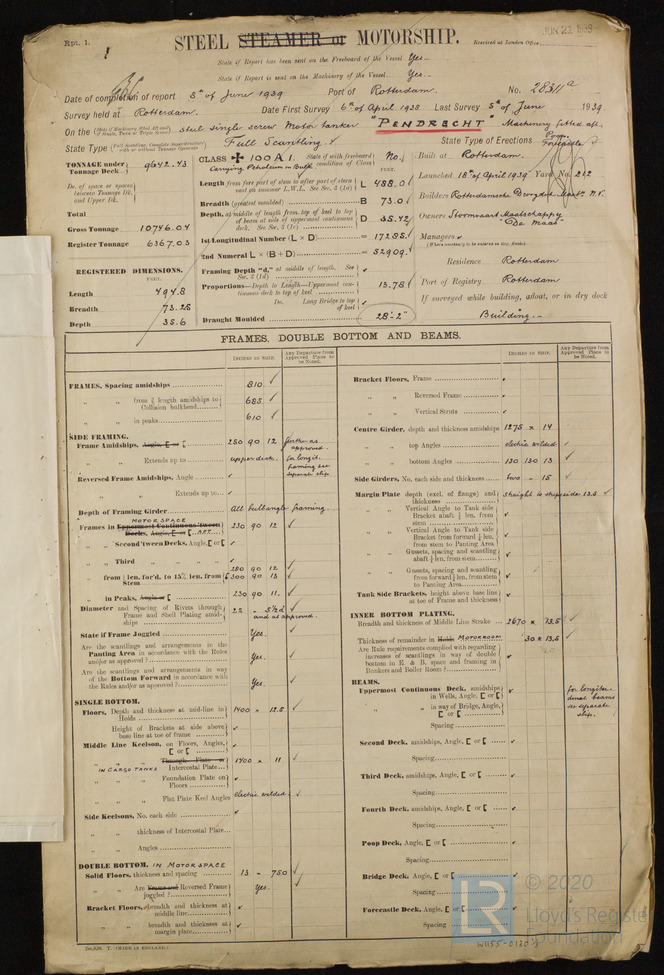 Rpt. 1.
JUN 22 1939
STEEL STEAMER or MOTORSHIP.
Received at London Office
State if Report has been sent on the Freeboard of the Vessel Yes.
State if Report is sent on the Machinery of the Vessel Yes.
Date of completion of report 5th of June 1939 Port of Rotterdam. No. 28311a
Survey held at Rotterdam. Date First Survey 6th of April 1938 Last Survey 5th of June 1939
On the (State if Machinery fitted Aft and if Single, Twin or Triple Screw) steel single screw Motor tanker "PENDRECHT" Machinery fitted aft.
State Type (Full Scantling, Complete Superstructure with or without Tonnage Opening) Full Scantling.
State Type of Erections Poop. Forecastle
TONNAGE under Tonnage Deck 9642.43
Do. of space or spaces between Tonnage Dk. and Upper Dk.
Total
Gross Tonnage 10746.04
Register Tonnage 6367.03
REGISTERED DIMENSIONS.
FEET.
Length 494.8
Breadth 73.25
Depth 35.6
CLASS 100A1. State if with freeboard condition of Class No.
Carrying Petroleum in Bulk.
Length from fore part of stem to after part of stern post on summer L.W.L. See Sec. 3 (1a) L 488.0
Breadth (greatest moulded) B 73.0
Depth, at middle of length from top of keel to top of beam at side of uppermost continuous deck. See Sec. 3 (1c) D 35.42
1st Longitudinal Number (L × D) = 17285.
2nd Numeral L × (B + D) = 52909.
Framing Depth "d," at middle of length. See Sec. 3 (1d)
Proportions—Depth to Length—Uppermost continuous deck to top of keel 13.78
Do. Long Bridge to top of keel
Draught Moulded 28'-2"
Built at Rotterdam.
Launched 18th of April 1939 Yard No. 212
Builders Rotterdamsche Droogdok Maats. N.V.
Owners Stoomvaart Maatschappy "De Maas"
Managers
(Where necessary to be entered in Reg. Book.)
Residence Rotterdam
Port of Registry Rotterdam
If surveyed while building, afloat, or in dry dock
Building.
FRAMES, DOUBLE BOTTOM AND BEAMS.
INCHES IN SHIP.
Any Departure from Approved Plans to be Noted.
FRAMES, Spacing amidships 810
" " from ⅗ length amidships to Collision bulkhead 685
" " in peaks 610
SIDE FRAMING.
Frame Amidships, Angle, [ or [ 250 90 12 further as approved. for longitl. framing see separate slip
" " Extends up to upper deck.
Reversed Frame Amidships, Angle
" " Extends up to
Depth of Framing Girder All bulbangle framing.
MOTORSPACE
Frames in Uppermost Continuous 'tween Decks, Angle, [ or [ 230 90 12
" " Second 'tween Decks, Angle, [ or [
" " Third " "
" from ⅕ len. for'd. to 15% len. from Stem 250 90 12 300 90 13
" in Peaks, Angle or [ 230 90 11.
Diameter and Spacing of Rivets through Frame and Shell Plating amidships 22 - 5½d and as approved.
State if Frame Joggled Yes.
Are the scantlings and arrangements in the Panting Area in accordance with the Rules and/or as approved? Yes.
Are the scantlings and arrangements in way of the Bottom Forward in accordance with the Rules and/or as approved? Yes.
SINGLE BOTTOM.
Floors, Depth and thickness at mid-line in Holds 1400 × 12.5
Height of Brackets at side above base line at toe of frame
Middle Line Keelson, on Floors, Angles, [ or [
" " Through Plate or Intercostal Plate 1400 × 11
IN CARGO TANKS
" " Foundation Plate on Floors
" " Flat Plate Keel Angles electric welded.
Side Keelsons, No. each side
" " thickness of Intercostal Plate
" " Angles
DOUBLE BOTTOM. IN MOTORSPACE
Solid Floors, thickness and spacing 13 - 750
" " Are Frame and Reversed Frame joggled? Yes.
Bracket Floors, breadth and thickness at middle line
" " breadth and thickness at margin plate
INCHES IN SHIP.
Any Departure from Approved Plans to be Noted.
Bracket Floors, Frame
" " Reversed Frame
" " Vertical Struts
Centre Girder, depth and thickness amidships 1275 × 14
" " top Angles electric welded
" " bottom Angles 130 130 13
Side Girders, No. each side and thickness two - 15
Margin Plate depth (excl. of flange) and thickness straight to shipside 13.5
" " Vertical Angle to Tank side Bracket abaft ¼ len. from stem
" " Vertical Angle to Tank side Bracket from forward ¼ len. from stem to Panting Area
" " Gussets, spacing and scantling abaft ¼ len. from stem
" " Gussets, spacing and scantling from forward ¼ len. from stem to Panting Area
Tank Side Brackets, height above base line at toe of Frame and thickness
INNER BOTTOM PLATING.
Breadth and thickness of Middle Line Strake 2670 × 13.5
Thickness of remainder in Holds MOTORROOM 30 × 13.5
Are Rule requirements complied with regarding increases of scantlings in way of double bottom in E. & B. space and framing in Bunkers and Boiler Room?
BEAMS.
Uppermost Continuous Deck, amidships in Wells, Angle, [ or [ for longitudinal beams as separate slip.
" " in way of Bridge, Angle, [ or [
Spacing
Second Deck, amidships, Angle, [ or [
Spacing
Third Deck, amidships, Angle, [ or [
Spacing
Fourth Deck, amidships, Angle, [ or [
Spacing
Poop Deck, Angle, [ or [
Spacing
Bridge Deck, Angle, [ or [
Spacing
Forecastle Deck, Angle, [ or [
Spacing
(MADE IN ENGLAND.)
LR
© 2020
Lloyd's Register
Foundation
W1155-0120